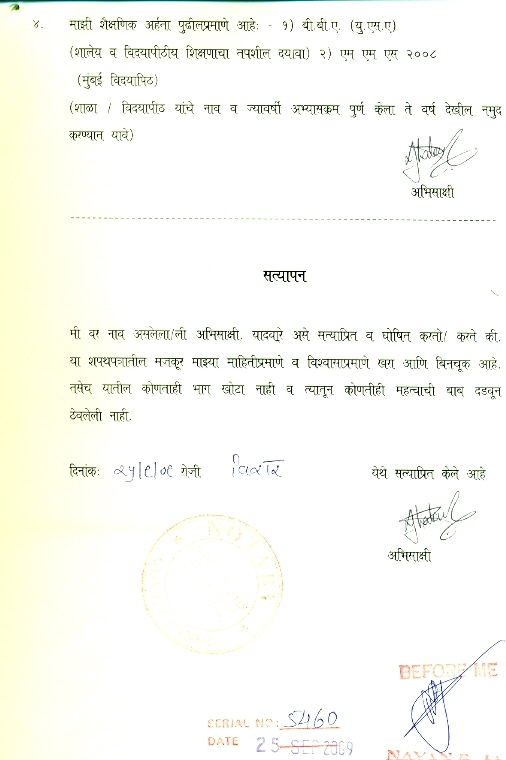 ४. माझी शैक्षणिक अर्हता पुढीलप्रमाणे आहेः - १) बी.बी.ए. (यु.एस.ए)
(शालेय व विदयापीठीय शिक्षणाचा तपशील दयावा) २) एम एम एस २००८
(मुंबई विदयापिठ)
(शाळा / विदयापीठ यांचे नाव व ज्यावर्षी अभ्यासक्रम पुर्ण केला ते वर्ष देखील नमुद
करण्यात यावे)
अभिसाक्षी
सत्यापन
मी वर नाव असलेला/ली अभिसाक्षी, यादवारे असे सत्याप्रित व घोषित करतो/ करते की,
या शपथपत्रातील मजकूर माझ्या माहितीप्रमाणे व विश्वासाप्रमाणे खरा आणि बिनचूक आहे.
तसेच यातील कोणताही भाग खोटा नाही व त्यातून कोणतीही महत्वाची बाब दडवून
ठेवलेली नाही.
दिनांकः २५/९/०९ रोजी विरार येथे सत्याप्रित केले आहे
अभिसाक्षी
NOTARY
BEFORE ME
SERIAL NO: 5460
DATE 25 SEP 2009